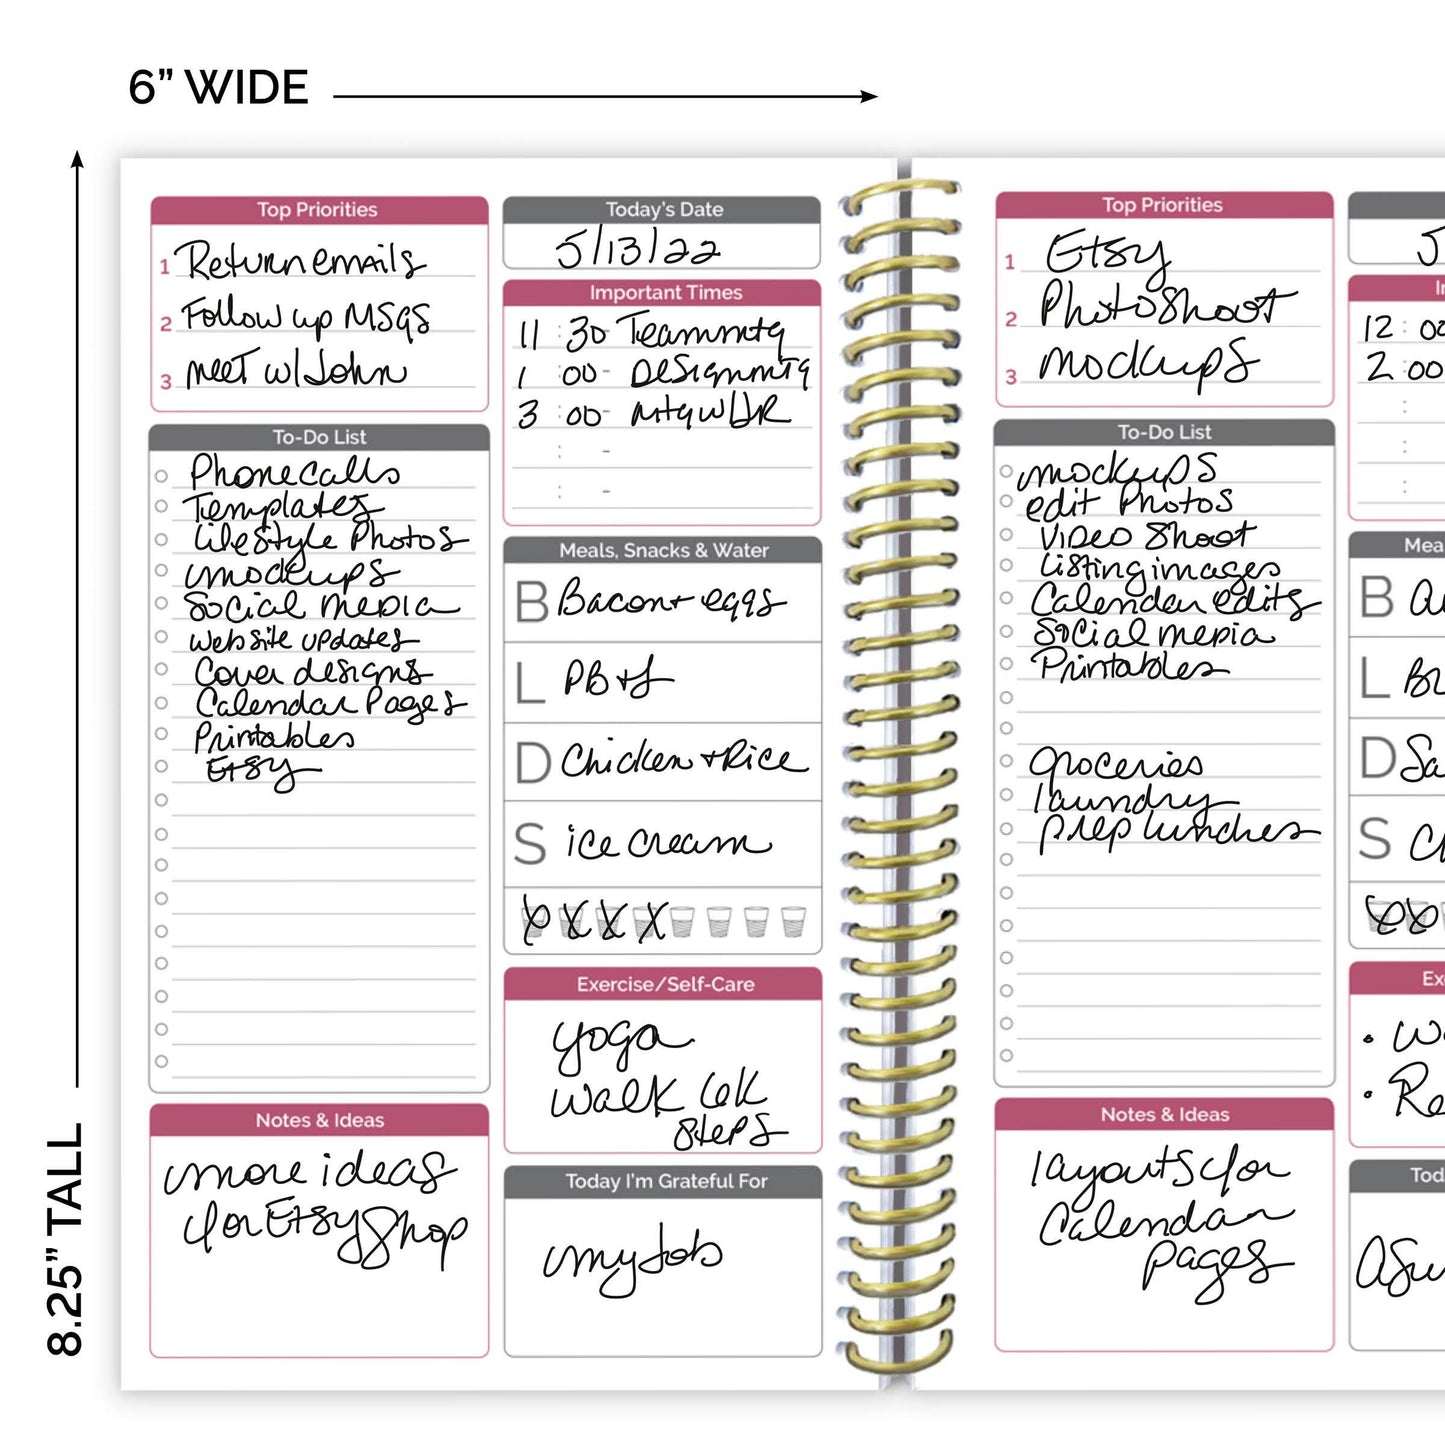 6” WIDE
8.25” TALL
Top Priorities
1 Return emails
2 Follow up MSGS
3 meet w/John
To-Do List
Phone calls
Templates
Lifestyle Photos
mockups
Social media
website updates
Cover designs
Calendar Pages
Printables
Etsy
Notes & Ideas
more ideas
for Etsy Shop
Today's Date
5/13/22
Important Times
11 : 30 - Team mtg
1 : 00 - Design mtg
3 : 00 - mtg w/HR
: -
: -
Meals, Snacks & Water
B Bacon + eggs
L PB+J
D Chicken + Rice
S ice cream
Exercise/Self-Care
yoga
walk 6K
steps
Today I'm Grateful For
my Job
Top Priorities
1 Etsy
2 Photoshoot
3 mockups
To-Do List
mockups
edit Photos
Video Shoot
Listing images
Calendar edits
Social media
Printables
groceries
laundry
prep lunches
Notes & Ideas
layouts for
Calendar
pages
12 : 00
2 : 00
:
:
:
B
L
D
S